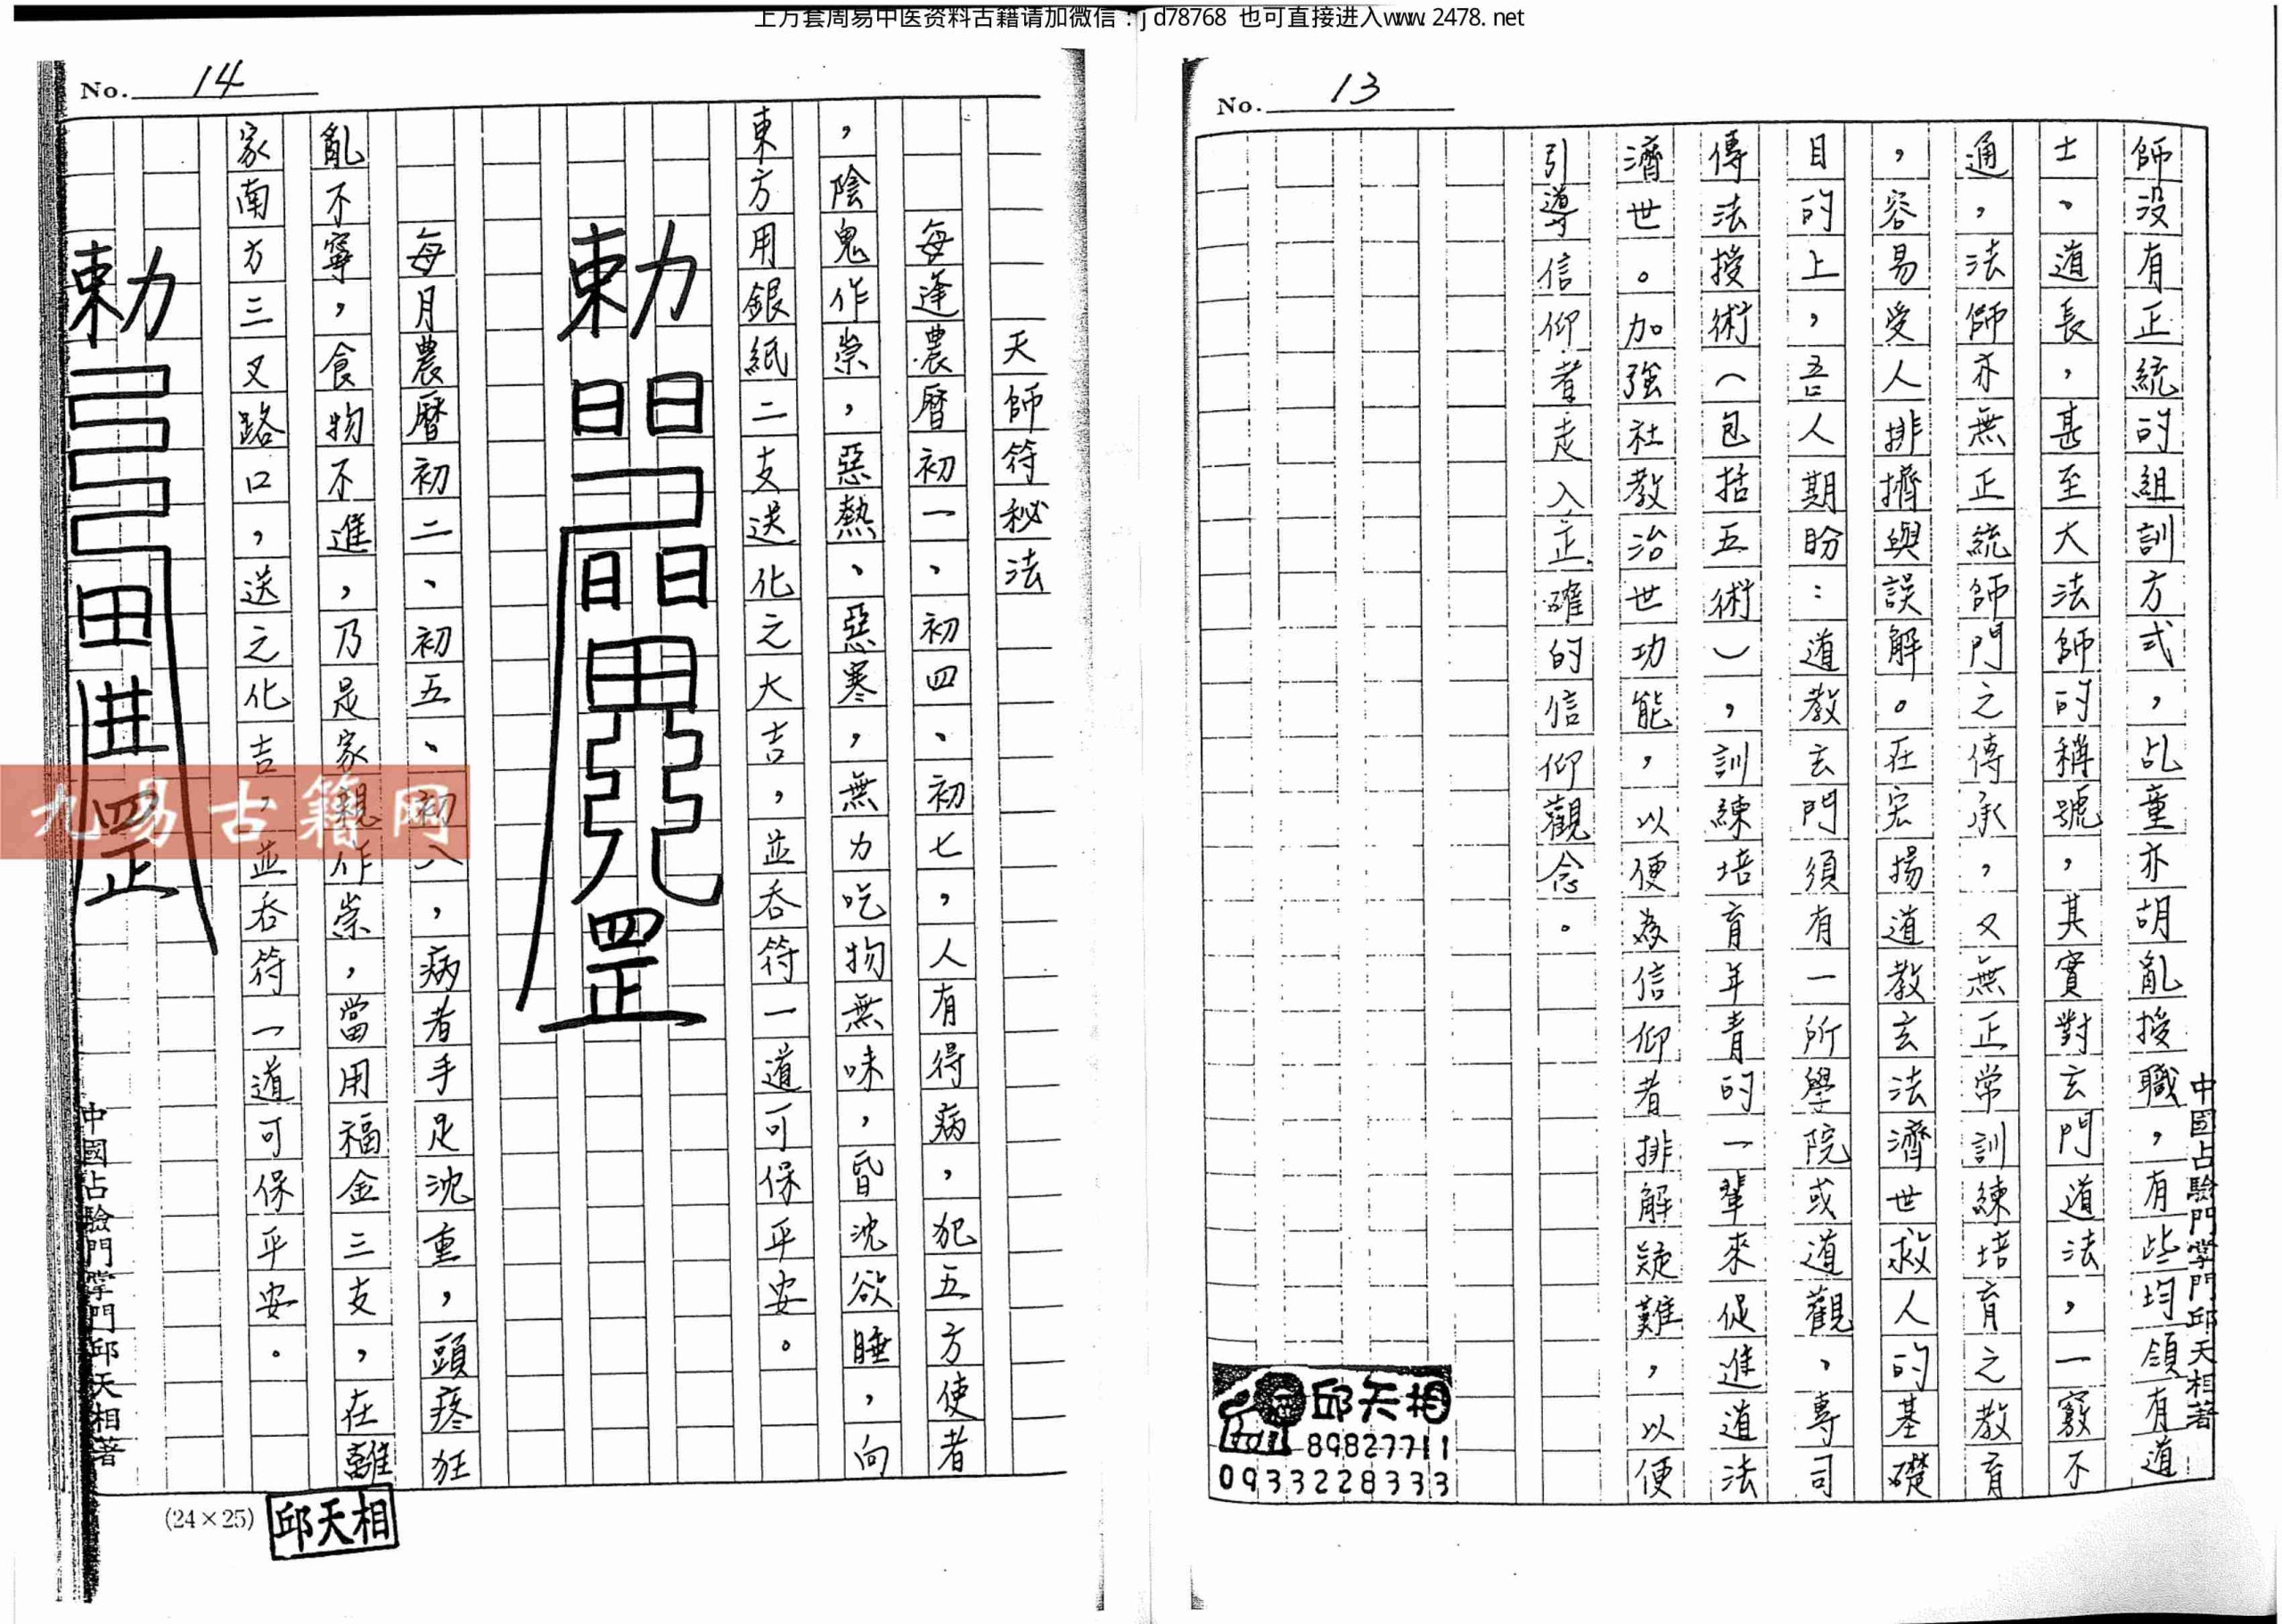 上万套周易中医资料古籍请加微信：jd78768 也可直接进入www.2478.net
No. 13
師没有正統的組訓方式，乩童亦胡亂授職，有些均領有道
士、道長，甚至大法師的稱號，其實對玄門道法，一竅不
通，法師亦無正統師門之傳承，又無正常訓練培育之教育
，容易受人排擠與誤解。在宏揚道教玄法濟世救人的基礎
目的上，吾人期盼：道教玄門須有一所學院或道觀，專司
傳法授術（包括五術），訓練培育年青的一輩來促進道法
濟世。加強社教治世功能，以便為信仰者排解疑難，以便
引導信仰者走入正確的信仰觀念。
中國占驗門掌門邱天相著
邱天相
89827711
0933228333
No. 14
天師符秘法
每逢農曆初一、初四、初七，人有得病，犯五方使者
，陰鬼作祟，惡熱、惡寒，無力吃物無味，昏沈欲睡，向
東方用銀紙二支送化之大吉，並吞符一道可保平安。
勅
每月農曆初二、初五、初八，病者手足沈重，頭疼狂
亂不寧，食物不進，乃是家親作祟，當用福金三支，在離
家南方三叉路口，送之化吉，並吞符一道可保平安。
勅
中國占驗門掌門邱天相著
(24×25)
邱天相
九易古籍网